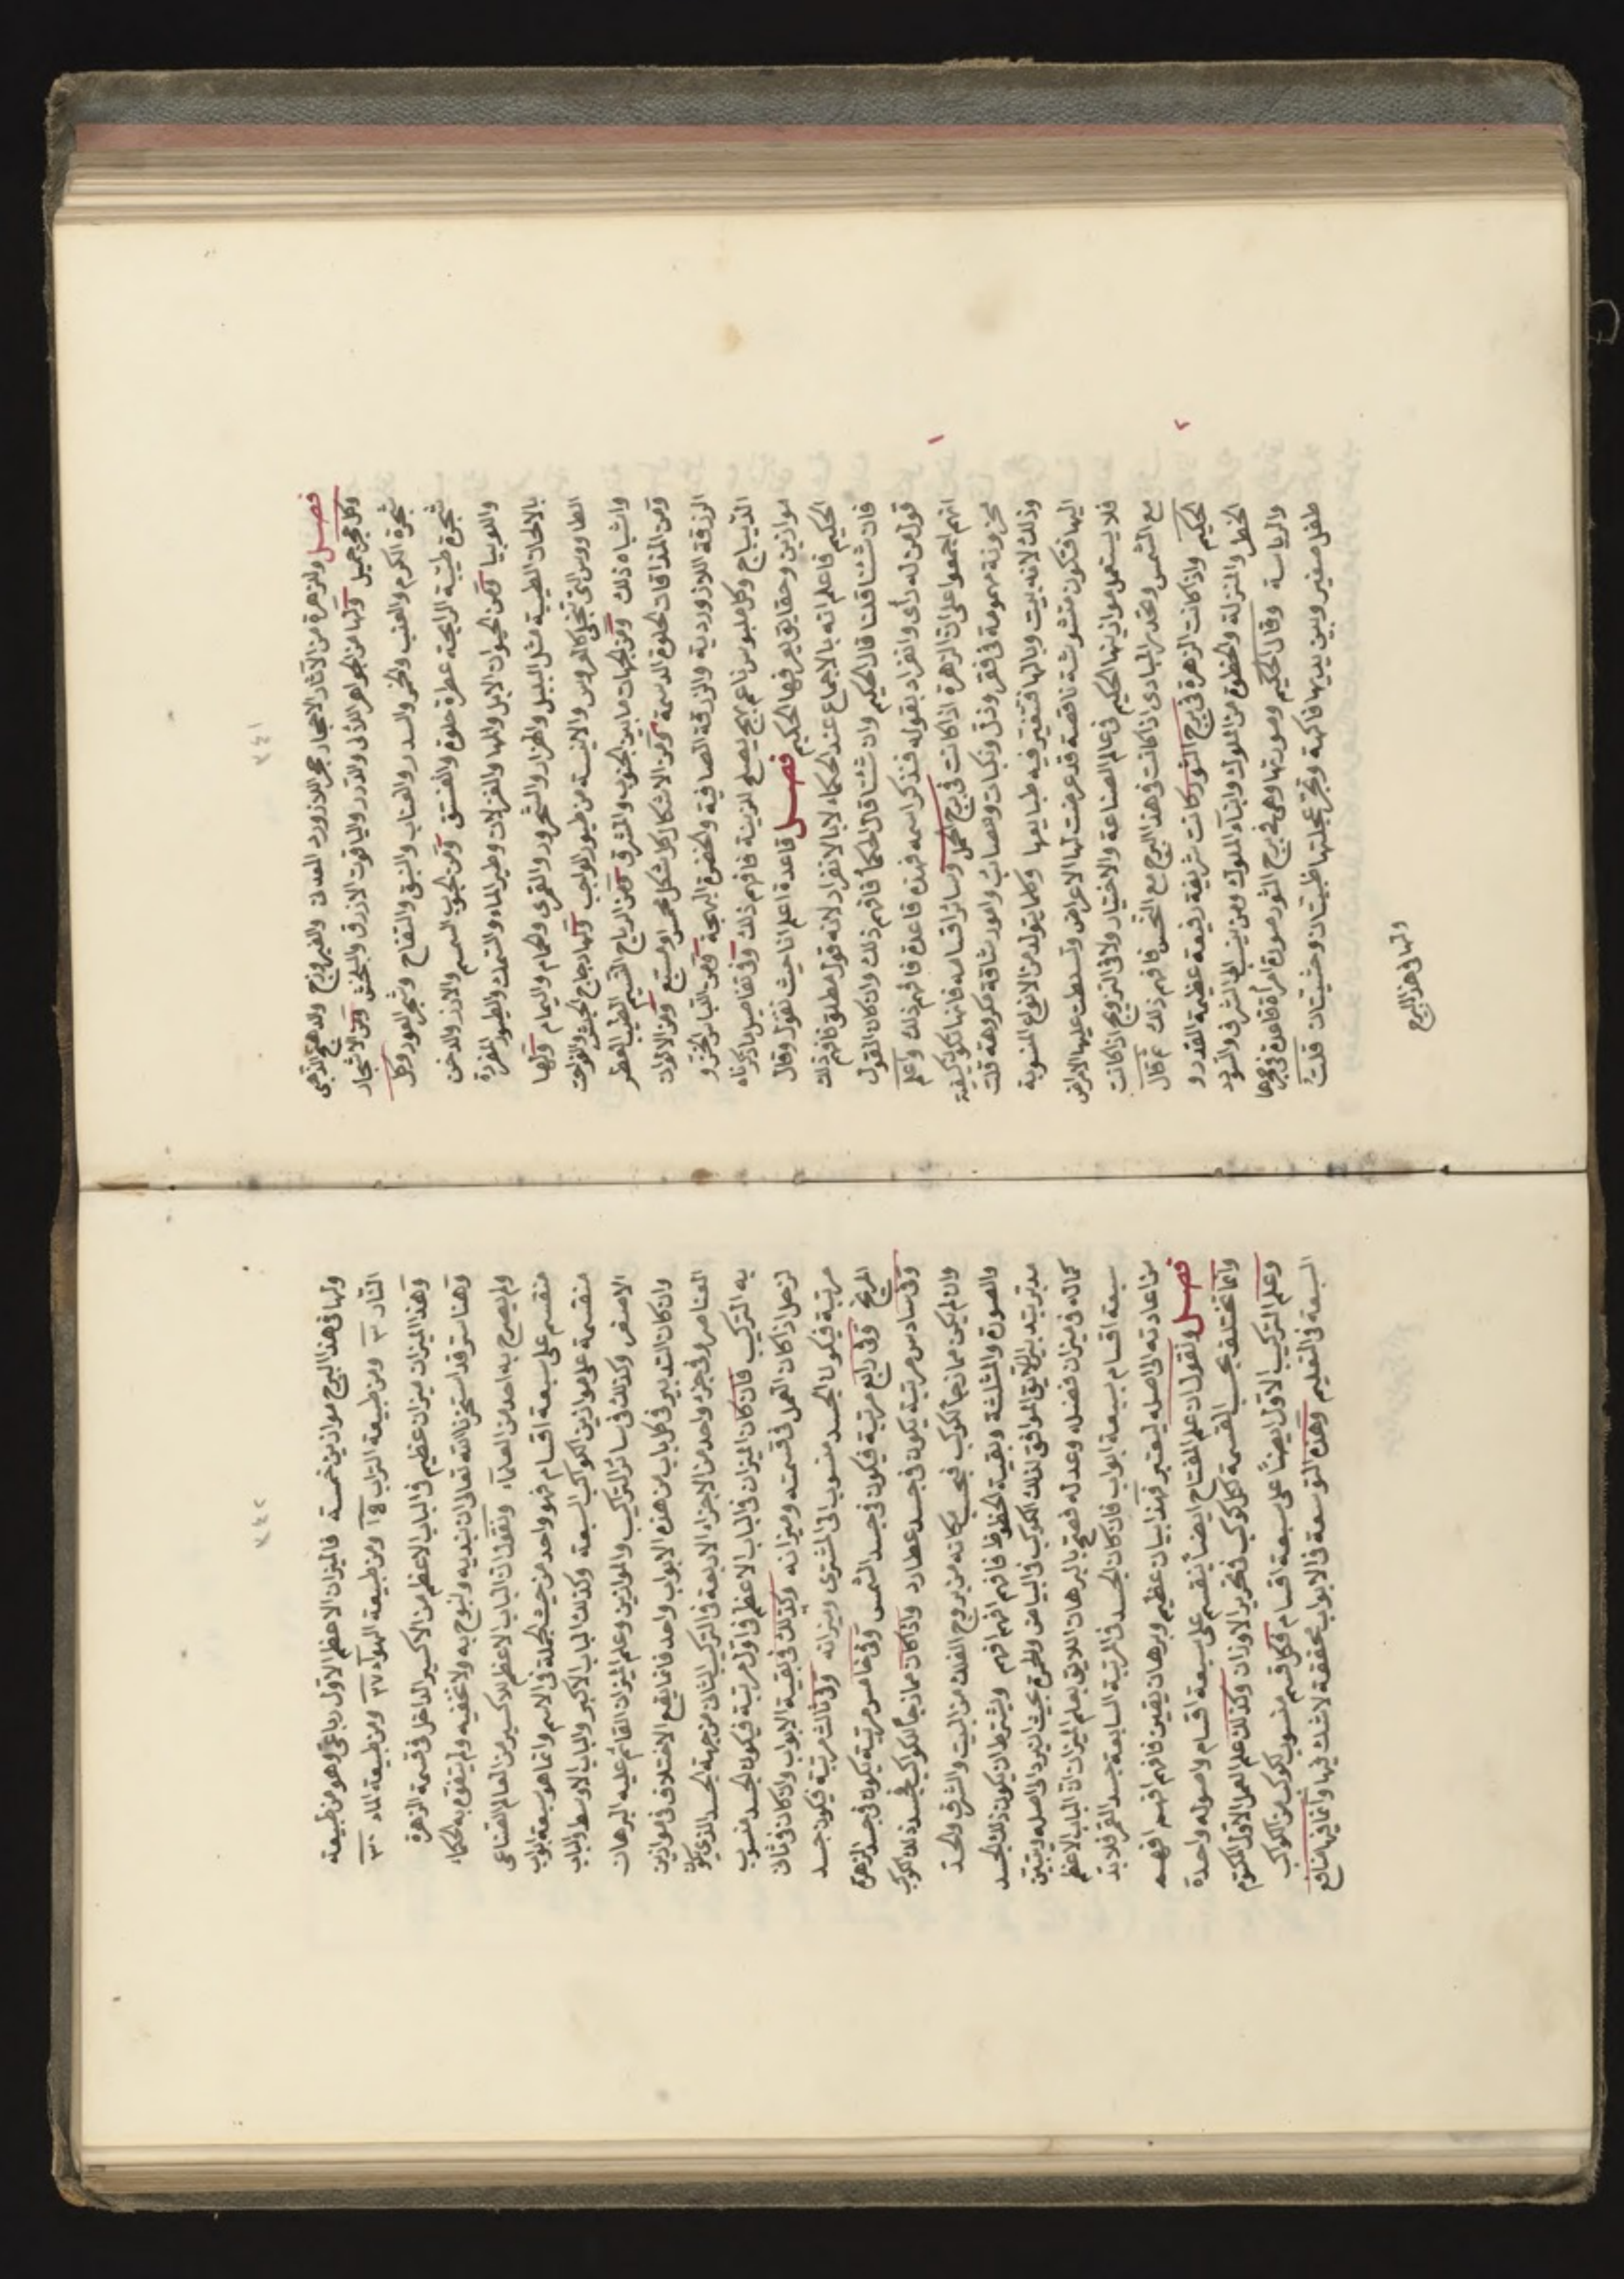 فصل وللزهرة من الآثار الاحجار حجر اللازورد المعدنى والفيروزج والدهنج الذهبى
وكل حجر جميل ولها من الجواهر اللآلى والدرر والياقوت الازرق والبلخش ومن الاشجار
شجرة الكرم والعنب والخمر والسدر والعناب والنبق والتفاح وشجر العود وكل
شجرة طيبة الرايحة عطرة حلوة والفستق ومن الحبوب السمسم والارز والدخن
واللوبيا ومن الحيوان الابل والمها والغزلان وطير الماء والسمك والطيور المغردة
بالالحان الطيبة مثل البلبل والهزار والشحرور والقمرى والحمام واليمام ولها
الطاووس التى تنجلى كالعروس والانيسة من طيور الواجب ولها دجاج الحبش والفواخت
واشباه ذلك ومن الجهات ما بين الجنوب والمشرق ومن الرياح النسيم الطيب العطر
ومن المذاقات الحلوة الدسمة ومن الاشكال كل شكل مخمس ومسبع ومن الالوان
الزرقة اللازوردية والزرقة الصافية والخضرة البهجة ومن الثياب الخز و
الديباج وكل ملبوس ناعم بهيج يصلح للزينة فافهم ذلك وفى تفاصيل ما ذكرناه
موازين وحقايق يعرفها الحكيم فصل قاعدة اعلم انا حيث نقول وقال
الحكيم فاعلم انه بالاجماع عند الحكماء لا بالانفراد لانه قول مطلق فافهم ذلك
فان شئنا قلنا قال الحكيم وان شئنا قال الحكما فافهم ذلك وان كان القول
قول من له رأى وانفراد بقوله فنذكر اسمه فهذه قاعدة فافهم ذلك واعلم
انهم اجمعوا على ان الزهرة اذا كانت فى برج الحمل وسائر اقسامه فانها تكون كئيبة
محزونة مهمومة فى فقر وذل ونكبات ومصائب وامور شاقة مكروهة قلت
وذلك لانه بيت وبالها فتتغير فيه طبايعها وكلما يتولد من الانواع المنسوبة
اليها فتكون متشوشة ناقصة قد عرضت لها الاعراض وتسلطت عليها الامراض
فلا يستعمل موازينها الحكيم فى عالم الصناعة والاختيار ولا فى التزويج اذا كانت
مع الشمس وتحذر المبادى اذا كانت فى هذا البرج مع النحس فافهم ذلك ثم قال
الحكيم واذا كانت الزهرة فى برج الثور كانت شريفة رفيعة عظيمة القدر و
الخطر والمنزلة والحظوة من الملوك وابناء الملوك ومن بيت الشرف والسؤدد
والرياسة وقال الحكيم وصورتها وهى فى برج الثور صورة امرأة قاعدة فى حجرها
طفل صغير وبين يديها فاكهة وتجر عجلتها ظبيتان وحشيتان قلت
ولها فى هذا البرج
ولها فى هذا البرج موازين خمسة فالميزان الاعظم الاول رباعى وهو من طبيعة
النار ٣ ومن طبيعة التراب ١٤ ومن طبيعة الهوآء ٢٧ ومن طبيعة الماء ٣٠
وهذا الميزان ميزان عظيم فى الباب الاعظم من الاكسير الداخل فى قسمة الزهرة
وهنا سر قد استخرنا الله تعالى ان نبديه ونبوح به ولا نخفيه ولم يتفوه به الحكماء
ولم يصرح به احد من العلماء ونقول ان الباب الاعظم للاكسير من العالم الصناعى
منقسم على سبعة اقسام فهو واحد من حيث الجملة فى الاسم وانما هو سبعة ابواب
منقسمة على موازين الكواكب السبعة وكذلك الباب الاكبر والباب الاوسط والباب
الاصغر وكذلك فى سائر التراكيب والموازين وعلم الميزان القائم عليه البرهان
وان كان التدبير فى كل باب من هذه الابواب واحد فانما يقع الاختلاف فى موازين
العناصر وفى جزء واحد من الاجزاء الاربعة فى التركيب الثانى من جهة الجسد الذى يكون
به التركيب فان كان الميزان فى الباب الاعظم فى اول مرتبة فيكون الجسد منسوب
لزحل اذا كان العمل فى قسمته وميزانه وكذلك فى بقية الابواب وان كان فى ثانى
مرتبة فيكون الجسد منسوب الى المشترى وميزانه وفى ثالث مرتبة فيكون جسد
المريخ وفى رابع مرتبة فيكون فى جسد الشمس وفى خامس مرتبة يكون فى جسد الزهرة
وفى سادس مرتبة يكون فى جسد عطارد واذا كان ممازجا لكوكب فجسد ذلك الكوكب
وان لم يكن ممازجا لكوكب فبحسب مكانه من بروج الفلك من البيت والشرف والحد
والصورة والمثلثة وبقية الحظوظ فافهم افهم افهم ويشترط ان يكون ذلك الجسد
مدبر بتدبير اللايق الموافق لذلك الكوكب فى البياض والحمرة بحيث ان يرد الى اصله ويتبين
كماله فى ميزان فضله وعدله فصح بالبرهان اللايق بعلم الميزان ان الباب الاعظم
سبعة اقسام بسبعة ابواب فان كان الجسد فى المرتبة السابعة جسد القمر فلا بد
من اعادته الى اصله ليعتبر فهذا بيان عظيم وبرهان يقين فافهم افهم افهم
فصل ونقول ان علم المفتاح ايضا ينقسم على سبعة اقسام واصوله واحدة
وانما تختلف بحسب القسمة لكل كوكب فى تحرير الاوزان وكذلك علم العمل الاول المكتوم
وعلم التركيب الاول ايضا على سبعة اقسام فكل قسم منسوب لكوكب من الكواكب
السبعة فى التعليم وهذه التوسعة فى الابواب محققة لا شك فيها وانما فيها منافع